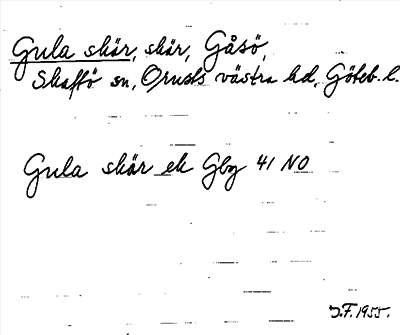 Gula skär, skär, Gåsö,
Skaftö sn, Orusts västra hd, Göteb. l.
Gula skär ek Gbg 41 NO
J.F. 1955.